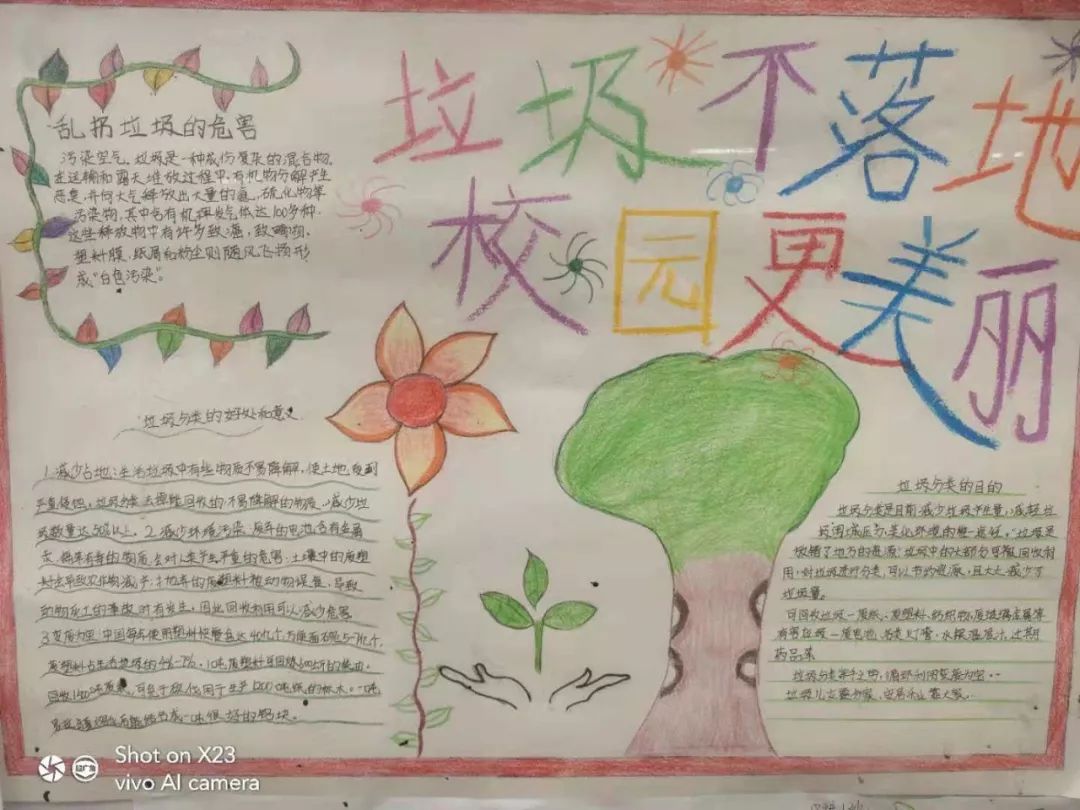 垃圾不落地
校园更美丽
乱扔垃圾的危害
污染空气。垃圾是一种成伤复杂的混合物。
在运输和露天堆放过程中,有机物分解产生
恶臭,并向大气释放出大量的氨、硫化物等
污染物,其中含有机挥发气体达100多种,
这些释放物中有许多致癌,致畸物。
塑料膜、纸屑和粉尘则随风飞扬形
成“白色污染”。
垃圾分类的好处和意义
1.减少占地:生活垃圾中有些物质不易降解,使土地受到
严重侵蚀。垃圾分类去掉能回收的不易降解的物质,减少垃
圾数量达50%以上。2.减少环境污染,废弃的电池含有金属
汞、镉等有毒的物质,会对人类产生严重的危害,土壤中的废塑
料会导致农作物减产,抛弃的废塑料被动物误食,导致
动物死亡的事故时有发生,因此回收利用可以减少危害
3.变废为宝:中国每年使用塑料快餐盒达40亿个,方便面碗5-7亿个,
废塑料占生活垃圾的4%-7%。1吨废塑料可回炼600斤的柴油。
回收1500吨废纸,可免于砍伐用于生产1200吨纸的林木。一吨
易拉罐熔化后能结成一吨很好的铝块。
垃圾分类的目的
垃圾分类是目前减少垃圾产生量,减轻垃
圾围城压力,美化环境的唯一途径,“垃圾是
放错了地方的资源”垃圾中的大部分可被回收利
用,对垃圾进行分类,可以节约资源,且大大减少了
垃圾量。
可回收垃圾-废纸、废塑料、纺织物、废玻璃金属等
有害垃圾-废电池、水银温度计、过期
药品等
垃圾分类举手之劳,循环利用变废为宝。
垃圾儿女靠分家,安居乐业靠大家。
Shot on X23
vivo AI camera